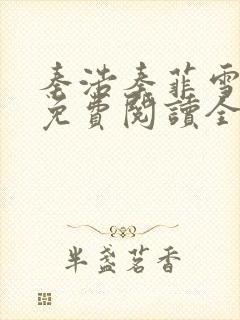 秦浩秦菲雪
免費閱讀全
半盞茗香